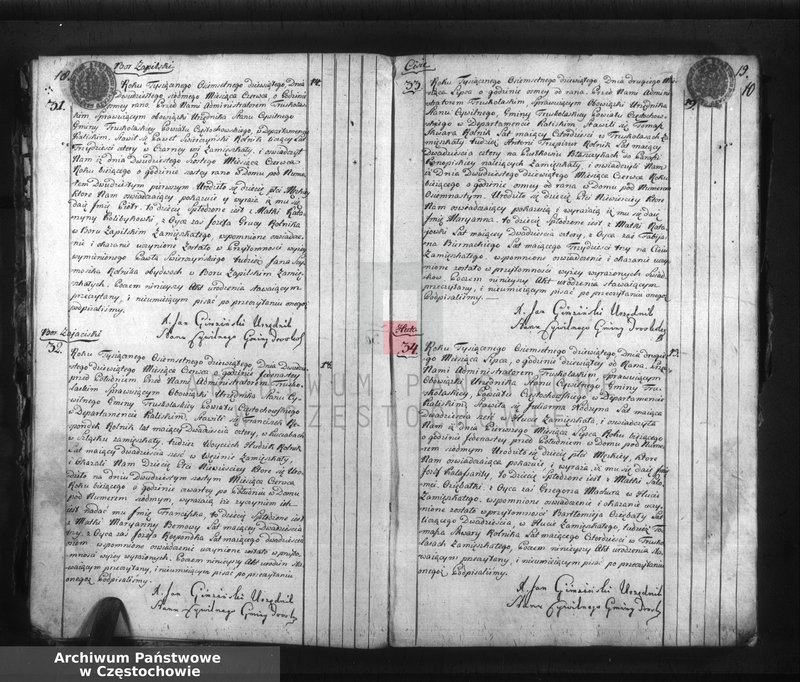 18.
Bór Zapilski
31.
Roku Tysiącznego Ośmsetnego dziewiątego, Dnia
Dwudziestego siódmego Miesiąca Czerwca o Godzinie
ósmey rano. Przed Nami Administratorem Truskolas-
kim sprawuiącym obowiązki Urzędnika Stanu Cywilnego
Gminy Truskolaskiey Powiatu Częstochowskiego, w Departamencie
Kaliskim, Stawił się Paweł Świerczyński Rolnik liczący Lat
Trzydzieści cztery w Czarney Zamięszkały, i oświadczył
Nam iż Dnia Dwudziestego szóstego Miesiąca Czerwca
Roku bieżącego o godzinie szóstey rano w Domu pod Nume-
rem Dwudziestym pierwszym Urodziło się dziecię płci Męskiey
które Nam oświadczaiący pokazuie y wyraża iż mu się
daie Jmię Piotr, to dziecię Spłodzone iest z Matki Kata-
rzyny, z Oyca zaś Józefa Rolnika
w Boru Zapilskim Zamięszkałego, wspomnione oświadcze-
nie i okazanie uczynione Zostało w Przytomności wyżey
wymienionego Pawła Świerczyńskiego tudzież Jana
Rolnika obydwoch w Boru Zapilskim Zamięsz-
kałych. Poczem ninieyszy Akt urodzenia stawaiącym
przeczytany, i nieumieiącym pisać po przeczytaniu onegoż
podpisaliśmy.
X. Jan Urzędnik
Stanu Cywilnego Gminy
Bór Zajaciski
32.
Roku Tysiącznego Ośmsetnego dziewiątego, Dnia Dwudzie-
stego dziewiątego Miesiąca Czerwca o godzinie jedenastey
przed Południem Przed Nami Administratorem Trusko-
laskim Sprawuiącym obowiązki Urzędnika Stanu Cy-
wilnego Gminy Truskolaskiey Powiatu Częstochowskiego
w Departamencie Kaliskim, Stawił się Franciszek
Rolnik lat maiący Dwadzieścia cztery, w
w Szląsku zamięszkały, tudzież Woyciech Rolnik
Lat maiący dwadzieścia sześć w Zamięszkały,
i okazali Nam Dziecię Płci Niewieściey które się Uro-
dziło na dniu Dwudziestym szóstym Miesiąca Czerwca
Roku bieżącego o godzinie czwartey po Południu w Domu
pod Numerem siódmym, wyrażaią iże życzeniem ich
iest dadać mu Jmię Franciszka, to dziecię Spłodzone iest
z Matki Maryanny Lat maiącey Dwadzieścia
trzy, z Oyca zaś Józefa Lat maiącego dwadzieścia
wspomnione oświadczenie uczynione zostało w przyto-
mności wyżey wyrażonych. Poczem ninieyszy Akt urodzin sta-
waiącym przeczytany, i nieumieiącym pisać po przeczytaniu
onegoż Podpisaliśmy.
X. Jan Urzędnik
Stanu Cywilnego Gminy
19.
10
Cisie
33
Roku Tysiącznego Ośmsetnego dziewiątego, Dnia drugiego Mie-
siąca Lipca o godzinie ósmey od rana. Przed Nami Admini-
stratorem Truskolaskim, sprawuiącym Obowiązki Urzędnika
Stanu Cywilnego, Gminy Truskolaskiey Powiatu Częstochow-
skiego w Departamencie Kaliskim Stawili się Tomasz
Skwara Rolnik Lat maiący Czterdzieści w Truskolasach Za-
mięszkały tudzież Antoni Rolnik Lat maiący
Dwadzieścia cztery na Pustkowiu do Parafii
Konopiskiey należących Zamięszkały, i oświadczyli Nam
iż Dnia Dwudziestego dziewiątego Miesiąca Czerwca Roku
bieżącego o godzinie ósmey od rana w Domu pod Numerem
Ośmnastym. Urodziło się dziecię Płci Niewieściey Które
Nam oświadczaiący pokazuią y wyrażaią iż mu się daie
Jmię Maryanna, to dziecię Spłodzone iest z Matki
Lat maiącey Dwadzieścia cztery, z Oyca zaś
Biernackiego Lat maiącego Trzydzieści trzy na Cisiu
Zamięszkałego, wspomnione oświadczenie i okazanie uczy-
nione zostało w przytomności wyżey wyrażonych świad-
ków. Poczem ninieyszy Akt urodzenia stawaiącym
przeczytany, i nieumieiącym pisać po przeczytaniu onegoż
Podpisaliśmy.
X. Jan Urzędnik
Stanu Cywilnego Gminy
Huta
34.
Roku Tysiącznego Ośmsetnego dziewiątego, dnia drugie-
go Miesiąca Lipca, o godzinie dziewiątey od Rana, przed
Nami Administratorem Truskolaskim, sprawuiącym
Obowiązki Urzędnika Stanu Cywilnego Gminy Tru-
skolaskiey, Powiatu Częstochowskiego w Departamencie
Kaliskim, Stawiła się Julianna Lat maiąca
Dwadzieścia sześć w Hucie Zamięszkała, i oświadczyła
Nam iż Dnia Pierwszego Miesiąca Lipca Roku bieżącego
o godzinie jedenastey przed Południem w Domu pod Nume-
rem siódmym Urodziło się dziecię płci Męskiey, które
Nam oświadczaiąca pokazuie, i wyraża, iż mu się daie Jmię
Józef Kalasanty, to Dziecię Spłodzone iest z Matki Salo-
mei, z Oyca zaś Grzegorza Machura w Hucie
Zamięszkałego, wspomnione oświadczenie i okazanie uczy-
nione zostało w przytomności Bartłomieja Lat
liczącego Dwadzieścia, w Hucie Zamięszkałego, tudzież To-
masza Skwary Rolnika Lat maiącego Czterdzieści w Trusko-
lasach Zamięszkałego, Poczem ninieyszy Akt urodzenia sta-
waiącym przeczytany, i nieumieiącym pisać po przeczytaniu
onegoż Podpisaliśmy.
X. Jan Urzędnik
Stanu Cywilnego Gminy
Archiwum Państwowe
w Częstochowie